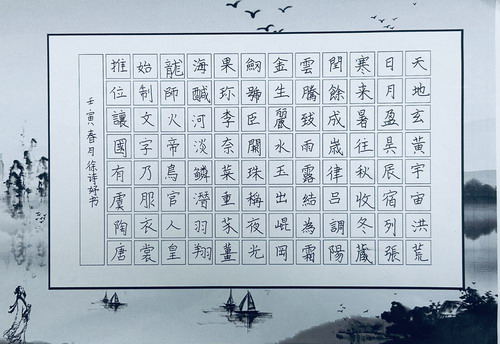 天地玄黃宇宙洪荒
日月盈昃辰宿列張
寒來暑往秋收冬藏
閏餘成歲律呂調陽
雲騰致雨露結為霜
金生麗水玉出崐岡
劍號巨闕珠稱夜光
果珎李奈菜重芥薑
海鹹河淡鱗潛羽翔
龍師火帝鳥官人皇
始制文字乃服衣裳
推位讓國有虞陶唐
壬寅春月徐诗好书